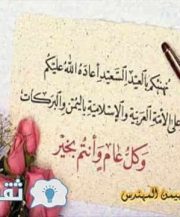 نهنئكم بالعيد السعيد أعاده الله عليكم
على الأمة العربية والإسلامية باليمن والبركات
وكل عام وأنتم بخير
المهندس
ثق